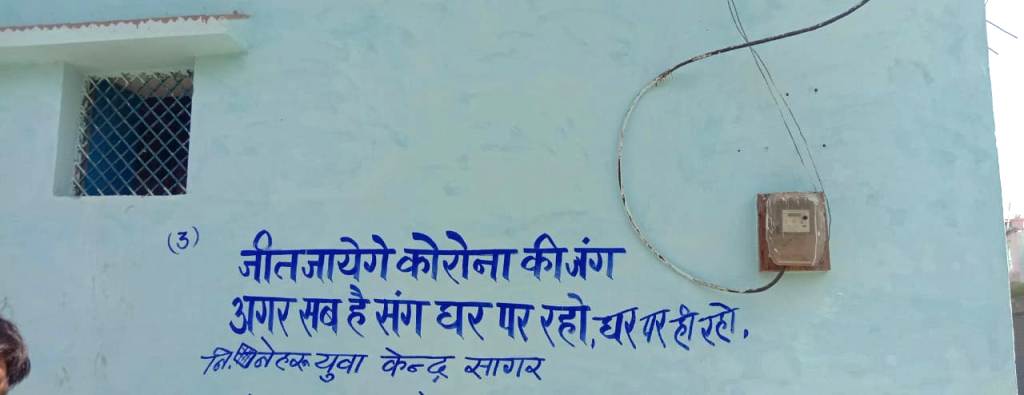 (3)
जीत जायेगे कोरोना की जंग
अगर सब है संग घर पर रहो, घर पर ही रहो.
नि. नेहरू युवा केन्द्र सागर